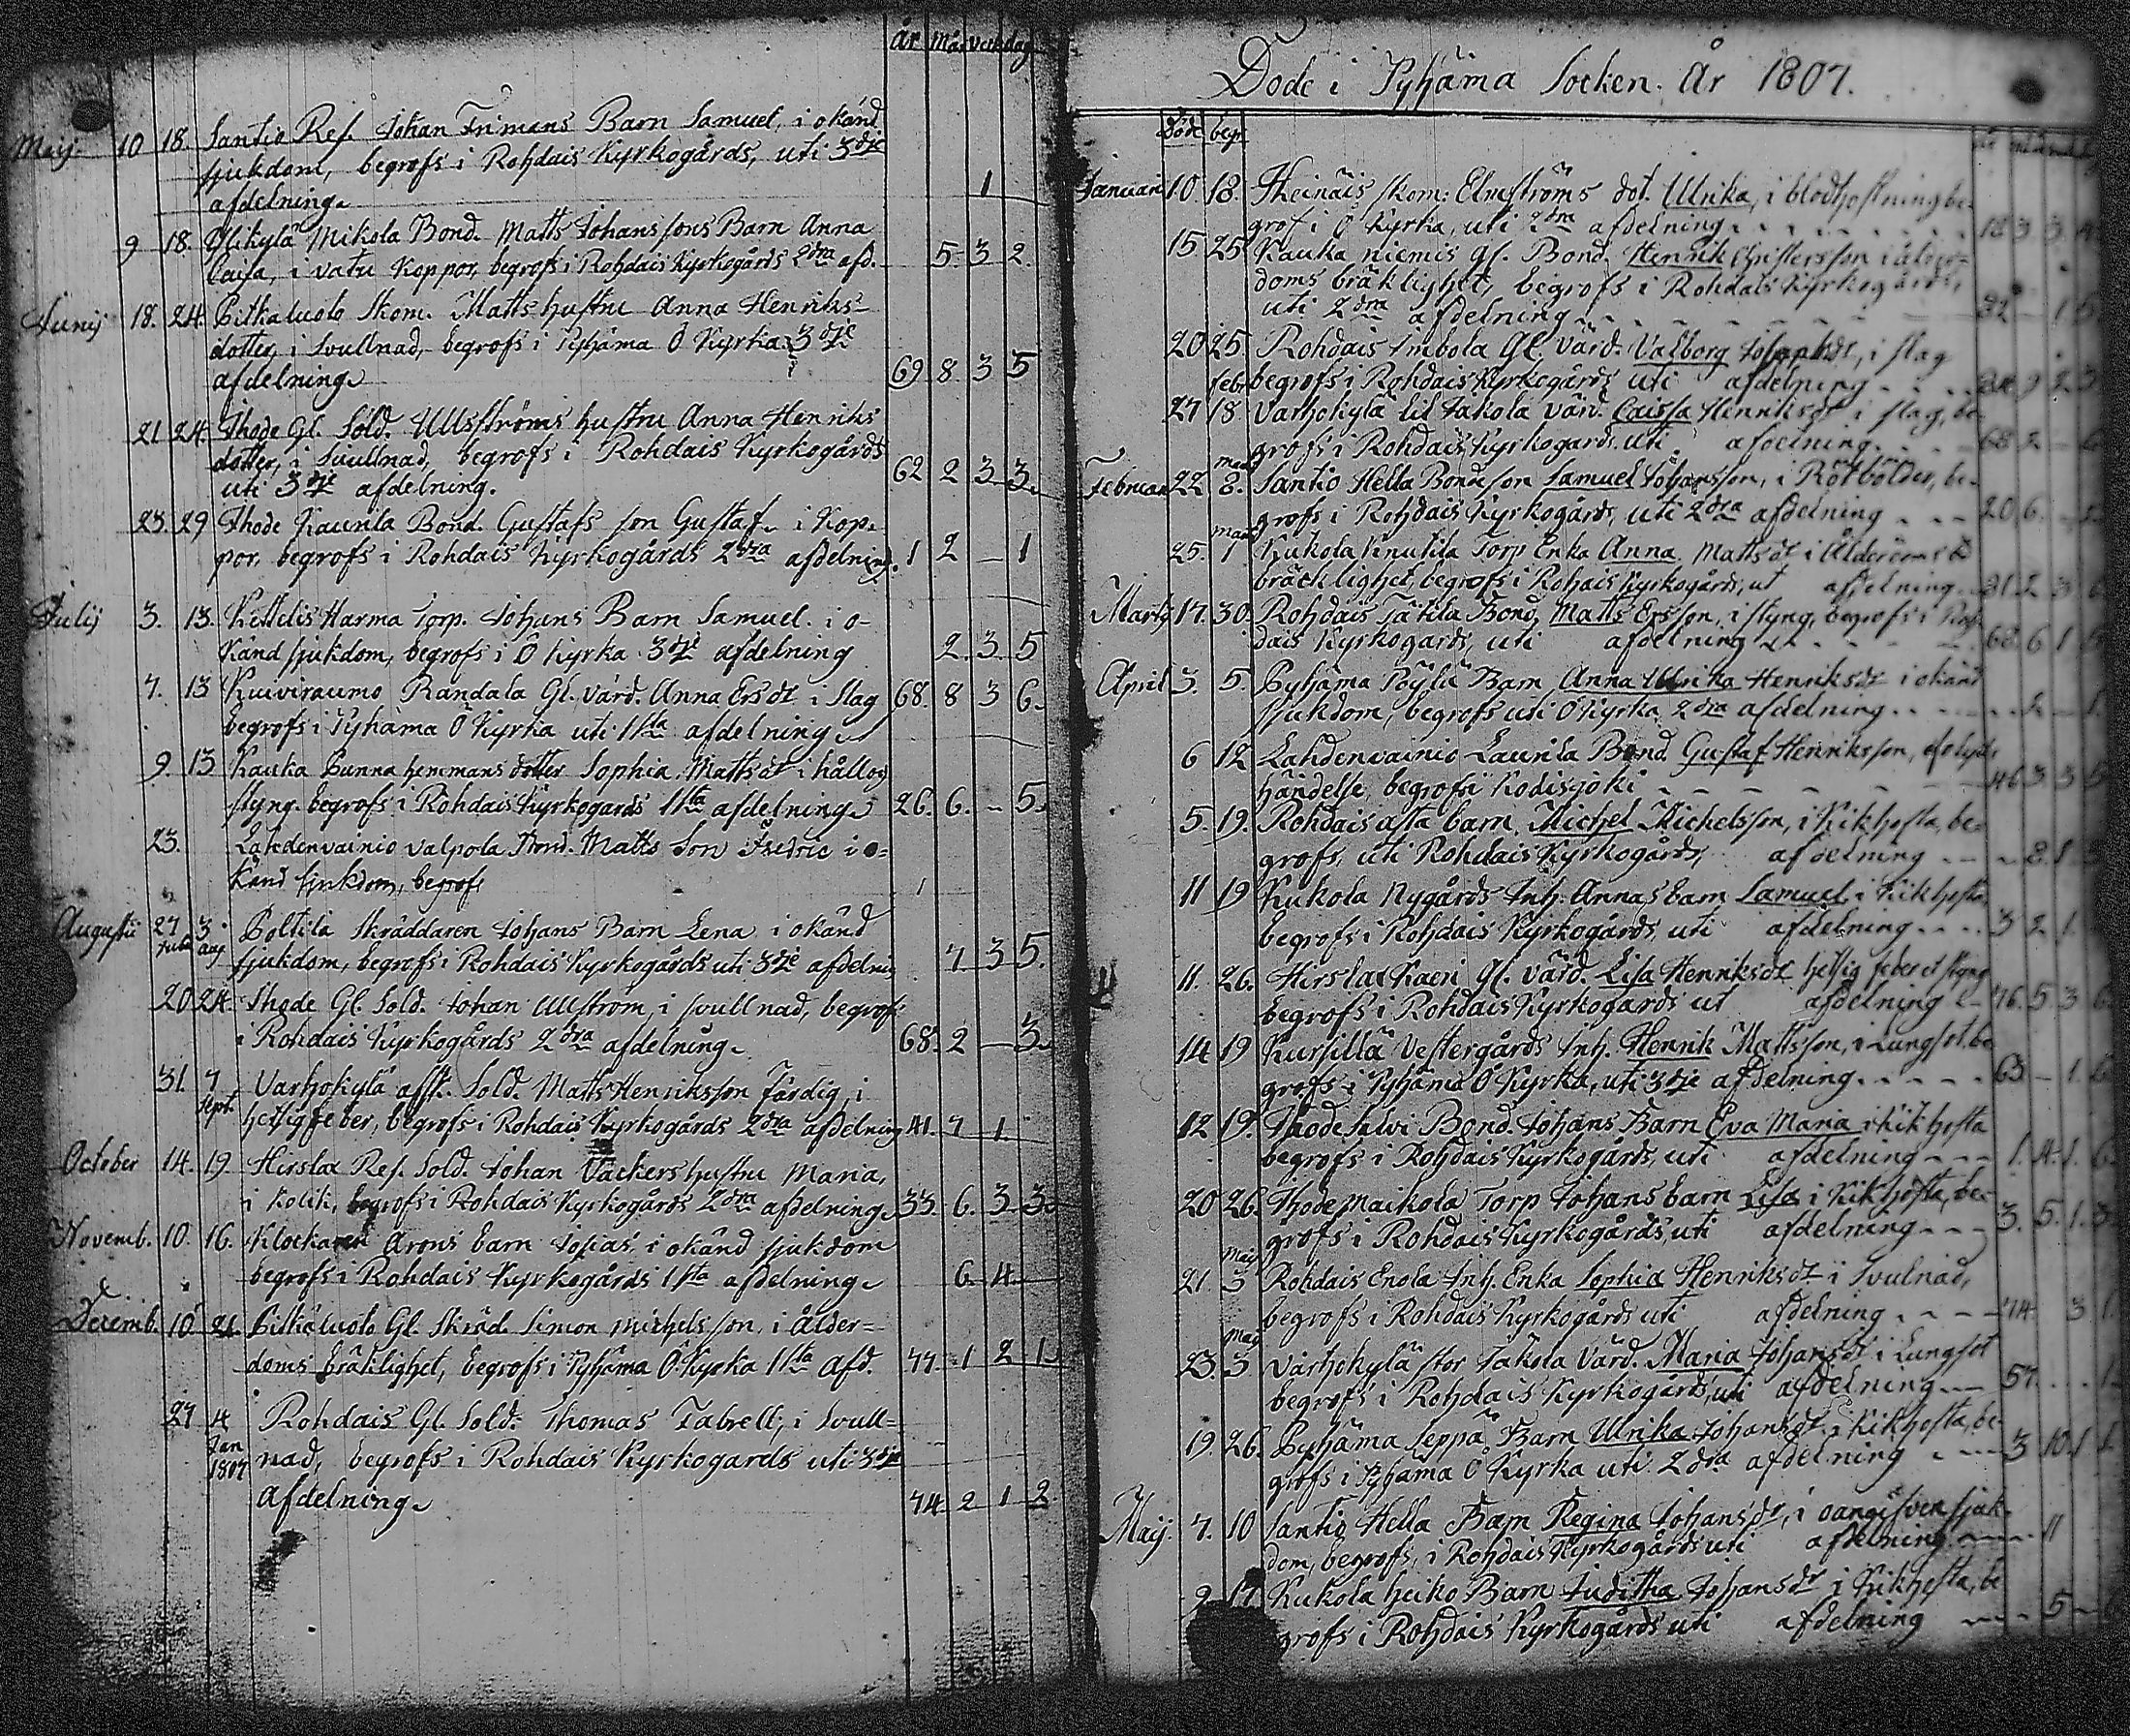 år mån veck dag
Maij. 10 18. Santio Ref. Johan Frimans Barn Samuel, i okänd
sjukdom, begrofs i Rohdais Kyrkogårds, uti 3dje
afdelning. 1
9 18. Ylikylä Mikola Bond. Matts Johanssons Barn Anna
Caisa, i vatu Koppor, begrofs i Rohdais Kyrkogårds 2dra afd. 5 3 2
Junij 18. 24. Pitkaluoto Skom. Matts hustru Anna Henriks-
dotter, i Svullnad, begrofs i Pyhäma Ö Kyrka 3dje
afdelning 69 8 3 5
21 24. Ihode Gl. Sold. Ullströms hustru Anna Henriks
dotter, i Svullnad, begrofs i Rohdais Kyrkogårds
uti 3dje afdelning. 62 2 3 3.
23. 29 Ihode Kaunla Bond. Gustafs son Gustaf i Kop-
por, begrofs i Rohdais Kyrkogårds 2dra afdelning. 1 2 – 1
Julij 3. 13. Kettelis Harma Torp. Johans Barn Samuel. i o-
känd sjukdom, begrofs i Ö Kyrka 3dje afdelning 2. 3. 5
7. 13 Kuiviraumo Randala Gl. värd. Anna Ersdt i slag 68. 8 3 6.
begrofs i Pyhäma Ö Kyrka uti 1sta afdelning
9. 13 Kauka Punna hemmans dotter Sophia Mattsdt i håll og
styng. begrofs i Rohdais Kyrkogards 1sta afdelning 26. 6. – 5.
23. Lahdenvainio valpola Bond. Matts Son Fredric i o=
känd sjukdom, begrofs
Augusti 27 Julii 3 aug Poltila Skräddaren Johans Barn Lena i okänd
sjukdom, begrofs i Rohdais Kyrkogårds uti 3dje afdelnin 7 3 5.
20 24. Ihode Gl. Sold. Johan Ullström, i svullnad, begrofs
i Rohdais Kyrkogårds 2dra afdelning. 68. 2 – 3.
31. 7 Sept. Varhokylä afsk. Sold. Matts Henriksson Färdig, i
hetsigfeber, begrofs i Rohdais Kyrkogårds 2dra afdelning 41. 7 1
October 14. 19 Hirslax Ref. Sold. Johan Vackers hustru Maria,
i Kolik, begrofs i Rohdais Kyrkogårds 2dra afdelning 33. 6. 3 3.
Novemb. 10. 16. Klockaren Arons barn Josias, i okänd sjukdom
begrofs i Rohdais Kyrkogårds 1sta afdelning 6 4
Decemb. 10 21. Pitkäluoto Gl. Skräd. Simon Michelsson, i ålder=
doms bräklighet, begrofs i Pyhäma Ö Kyrka 1sta afd. 77 1 2 1
27 4 Jan 1807 Rohdais Gl. Sold. Thomas Tabrell, i Svull=
nad, begrofs i Rohdais Kyrkogards uti 3dje
afdelning 74 2 1 2
Döde i Pyhäma Socken. År 1807.
Döde begr.
Januari 10. 18. Heinäis skom: Elmströms dot. Ulrika, i blodhostning be-
grof i Ö Kyrka, uti 2dra afdelning 18 3 3
15. 25 Kauka niemis Gl. Bond. Henrik Christersson i ålder=
doms bräklighet, begrofs i Rohdais Kyrkogårds,
uti 2dra afdelning
20 25. Rohdais Imbola Gl. värd. Valborg Josephsdt, i slag
begrofs i Rohdais Kyrkogårds uti afdelning
27 febr 18 Varhokylä lill Jakola värd. Caissa Henriksdt i slag, be-
grofs i Rohdais Kyrkogards uti afdelning 68 2
Februari 22 mars 8. Santio Hella Bondeson Samuel Johansson, i Rötbölder, be-
grofs i Rohdais Kyrkogårds, uti 2dra afdelning 20 6.
25. mars 1 Kukola Knutila Torp Enka Anna Mattsdt i Ålderdoms
bräcklighet, begrofs i Rohdais Kyrkogårds, ut afdelning
Martij 17. 30. Rohdais Tätila Bond. Matts Ersson, i styng, begrofs i Roh-
dais Kyrkogards, uti afdelning 68 6 1
April 3. 5. Pyhäma Pöylä Barn Anna Ulrika Henriksdt i okänd
sjukdom, begrofs uti Ö Kyrka 2dra afdelning 2 – 1.
6 12 Lahdenvainio Launila Bond. Gustaf Henriksson, olyks
händelse, begrofs i Kodisjoki 46 3 3 5
5. 19. Rohdais afta barn. Michel Michelsson, i Kikhosta, be-
grofs, uti Rohdais Kyrkogårds, afdelning
11 19 Kukola Nygårds Inh. Annas barn Samuel, i Kikhosta
begrofs i Rohdais Kyrkogårds, uti afdelning 3 2 1.
11. 26. Hirslax Kaeri Gl. värd. Lisa Henriksdt hetsig feber et styng
begrofs i Rohdais Kyrkogards ut afdelning 76. 5 3 6
14 19 Kursilla Vestergårds Inh. Henrik Mattsson, i Lungsot, be
grofs i Pyhäma Ö Kyrka, uti 3dje afdelning 63 – 1.
12 19. Ihode Salvi Bond. Johans Barn Eva Maria i kikhosta
begrofs i Rohdais Kyrkogårds, uti afdelning 1. 4. 1. 6
20 26. Ihode Maikola Torp Johans barn Lisa i Kikhosta, be-
grofs i Rohdais Kyrkogårds, uti afdelning 3. 5. 1. 3
21. Maij 3 Rohdais Enola Inh. Enka Sophia Henriksdt i Svulnad,
begrofs i Rohdais Kyrkogårds uti afdelning 74. 3 1.
23. Maij 3 Varhokylä stor Jakola Värd. Maria Johansdt i Lungsot
begrofs i Rohdais Kyrkogårds, uti afdelning 57.
19. 26. Pyhäma Seppä Barn Ulrika Johansdt i Kikhosta, be-
grofs i Pyhäma Ö Kyrka uti 2dra afdelning 3 10. 1 1.
Maij. 7. 10 Santio Hella Barn Regina Johansdr, i oangifven sjuk-
dom, begrofs, i Rohdais Kyrkogårds uti afdelning 11
9 17 Kukola heiko Barn Juditha Johansdr i Kikhosta, be
grofs i Rohdais Kyrkogårds uti afdelning 5